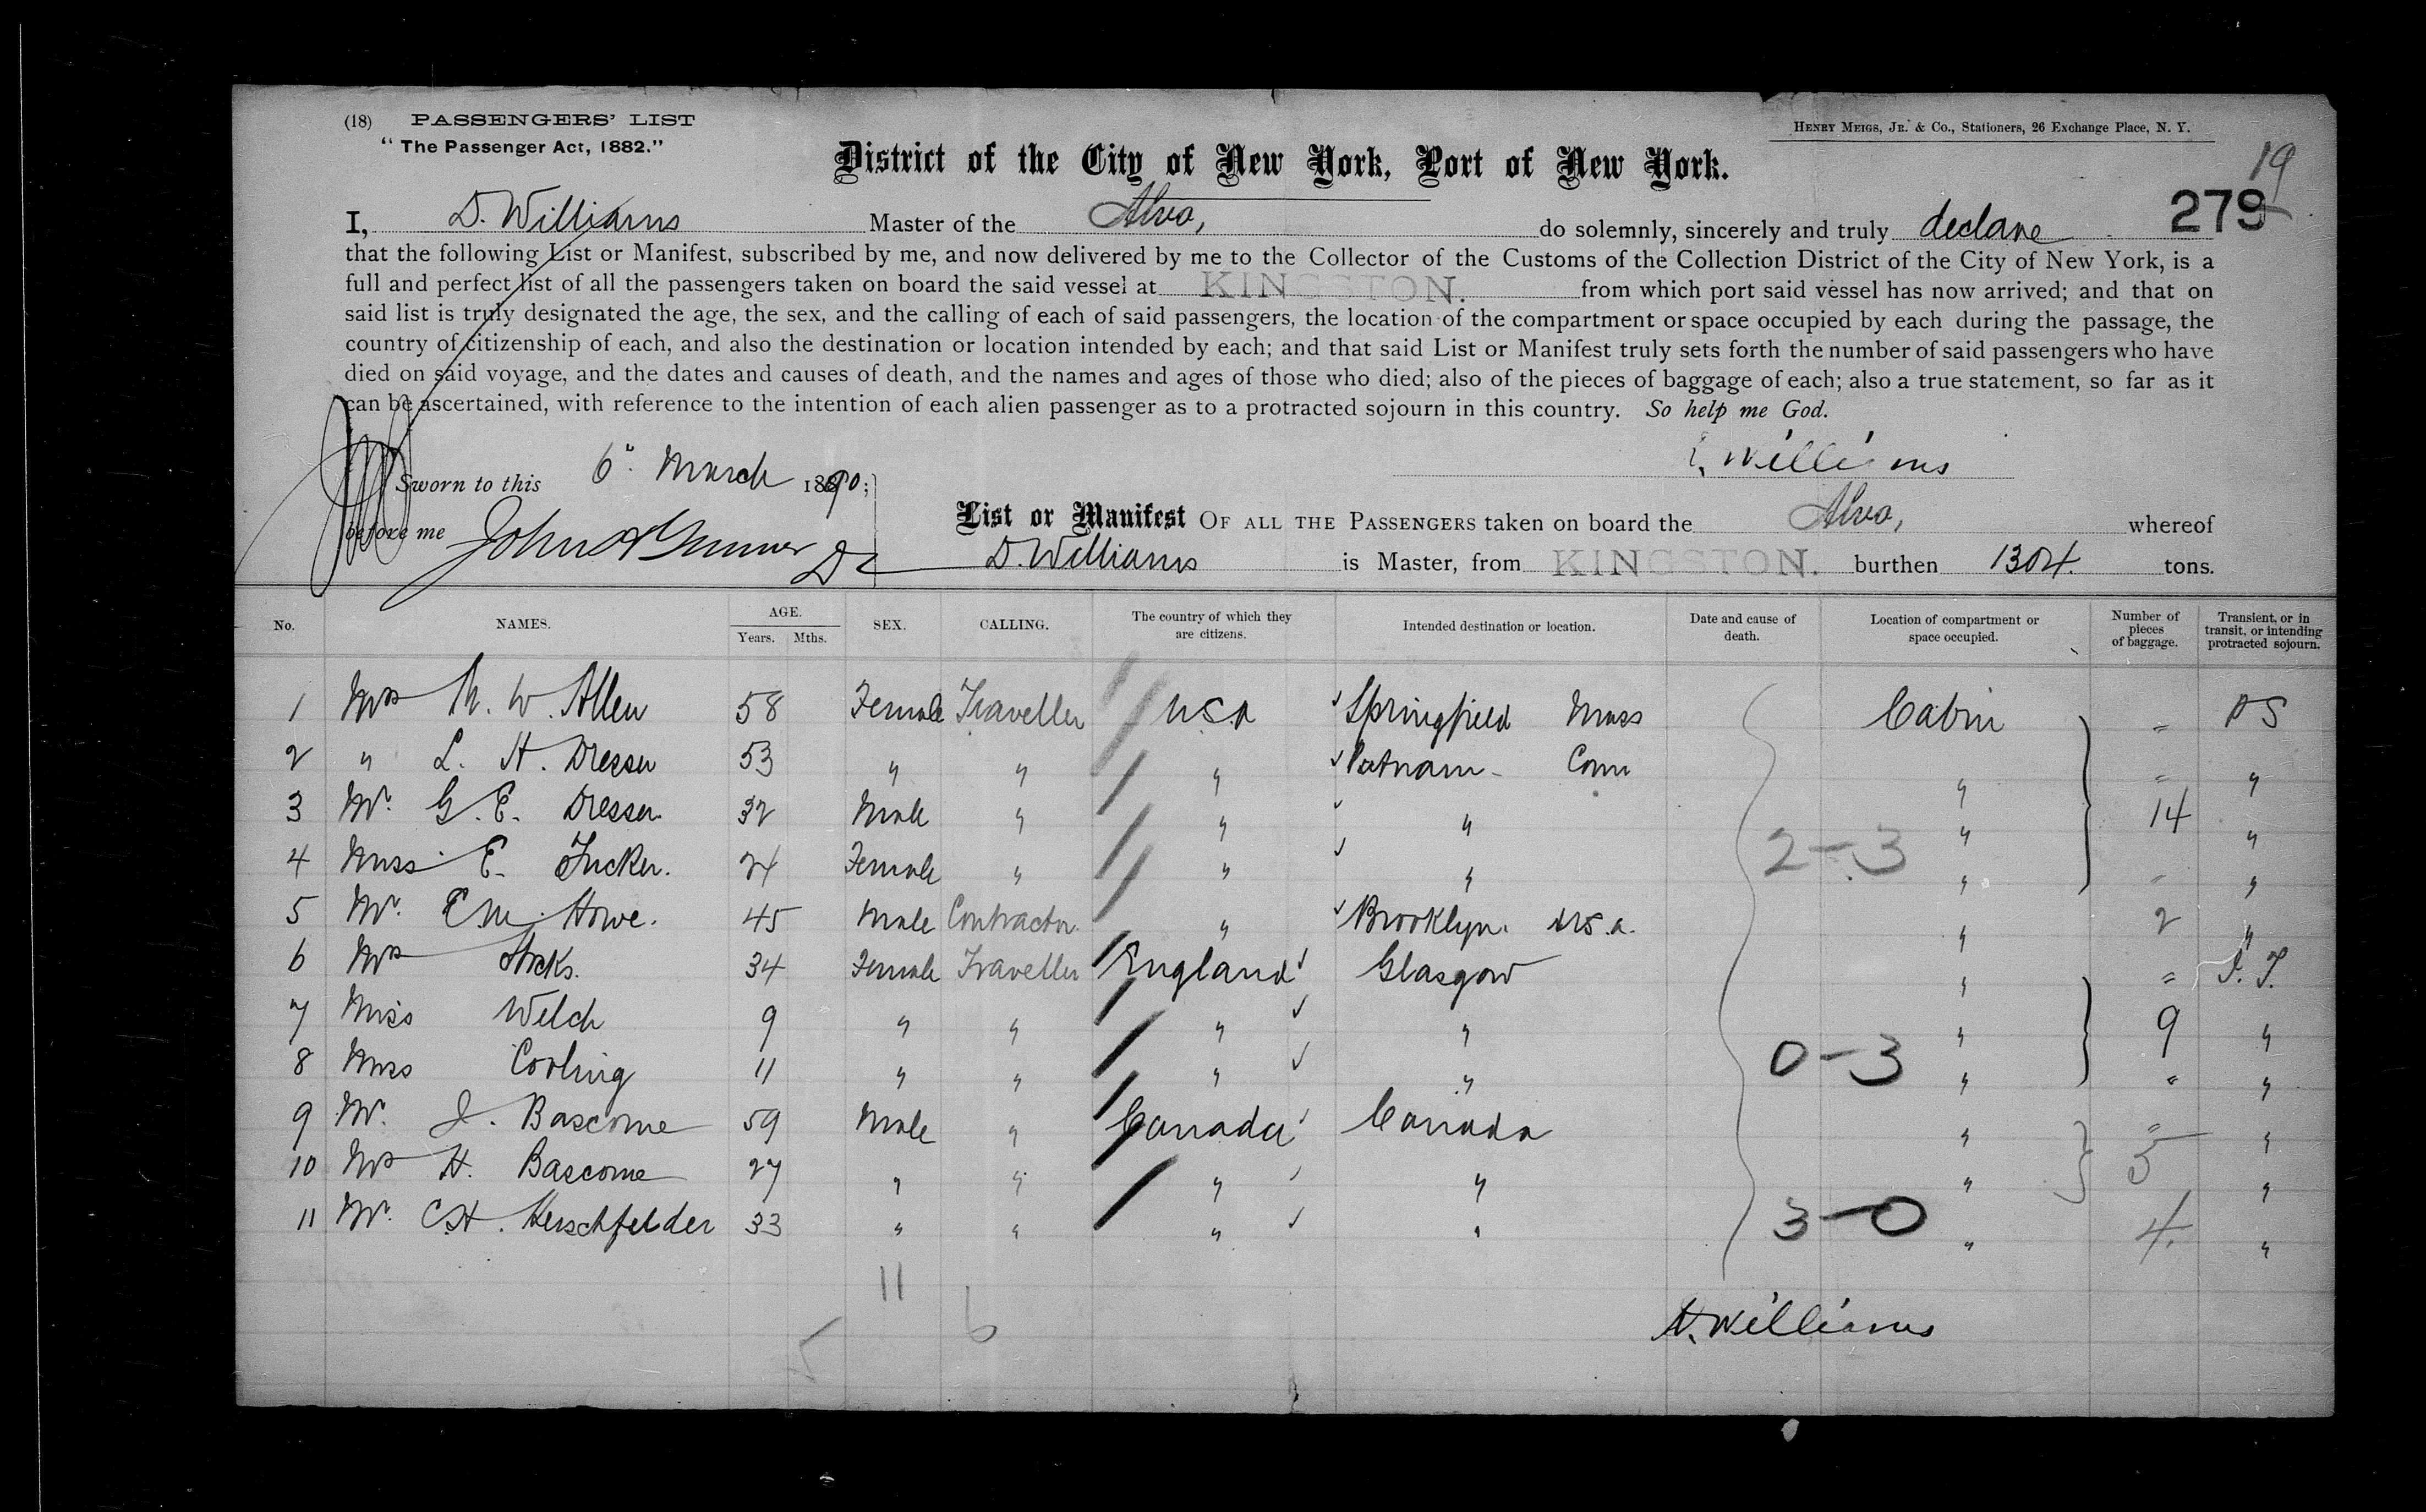 (18) PASSENGERS' LIST
"The Passenger Act, 1882."
HENRY MEIGS, JR. & CO., Stationers, 26 Exchange Place, N. Y.
District of the City of New York, Port of New York.
19
279
I, D. Williams Master of the Alvo, do solemnly, sincerely and truly declare
that the following List or Manifest, subscribed by me, and now delivered by me to the Collector of the Customs of the Collection District of the City of New York, is a
full and perfect list of all the passengers taken on board the said vessel at KINGSTON. from which port said vessel has now arrived; and that on
said list is truly designated the age, the sex, and the calling of each of said passengers, the location of the compartment or space occupied by each during the passage, the
country of citizenship of each, and also the destination or location intended by each; and that said List or Manifest truly sets forth the number of said passengers who have
died on said voyage, and the dates and causes of death, and the names and ages of those who died; also of the pieces of baggage of each; also a true statement, so far as it
can be ascertained, with reference to the intention of each alien passenger as to a protracted sojourn in this country. So help me God.
Williams
Sworn to this 6" March 1890;
before me John
List or Manifest OF ALL THE PASSENGERS taken on board the Alvo, whereof
D. Williams is Master, from KINGSTON. burthen 1304. tons.
No. NAMES. AGE. Years. Mths. SEX. CALLING. The country of which they are citizens. Intended destination or location. Date and cause of death. Location of compartment or space occupied. Number of pieces of baggage. Transient, or in transit, or intending protracted sojourn.
1 Mrs M. W. Allen 58 Female Traveller USA Springfield Mass Cabin " PS
2 " L. H. Dresser 53 " " " Putnam - Conn " " "
3 Mr. G. E. Dresser 32 Male " " " " 14 "
4 Miss E. Tucker. 24 Female " " " " " "
5 Mr. E M. Howe. 45 Male Contractor. " Brooklyn. U.S.A. " 2 "
6 Mrs 34 Female Traveller England Glasgow " " I. T.
7 Miss Welch 9 " " " " " 9 "
8 Miss Cooling 11 " " " " " " "
9 Mr. J. Bascome 59 Male " Canada Canada " " "
10 H. Bascome 27 " " " " " 5 "
11 Mr. C.H. Herschfelder 33 " " " " " 4. "
2-3
0-3
3-0
11
6
Williams